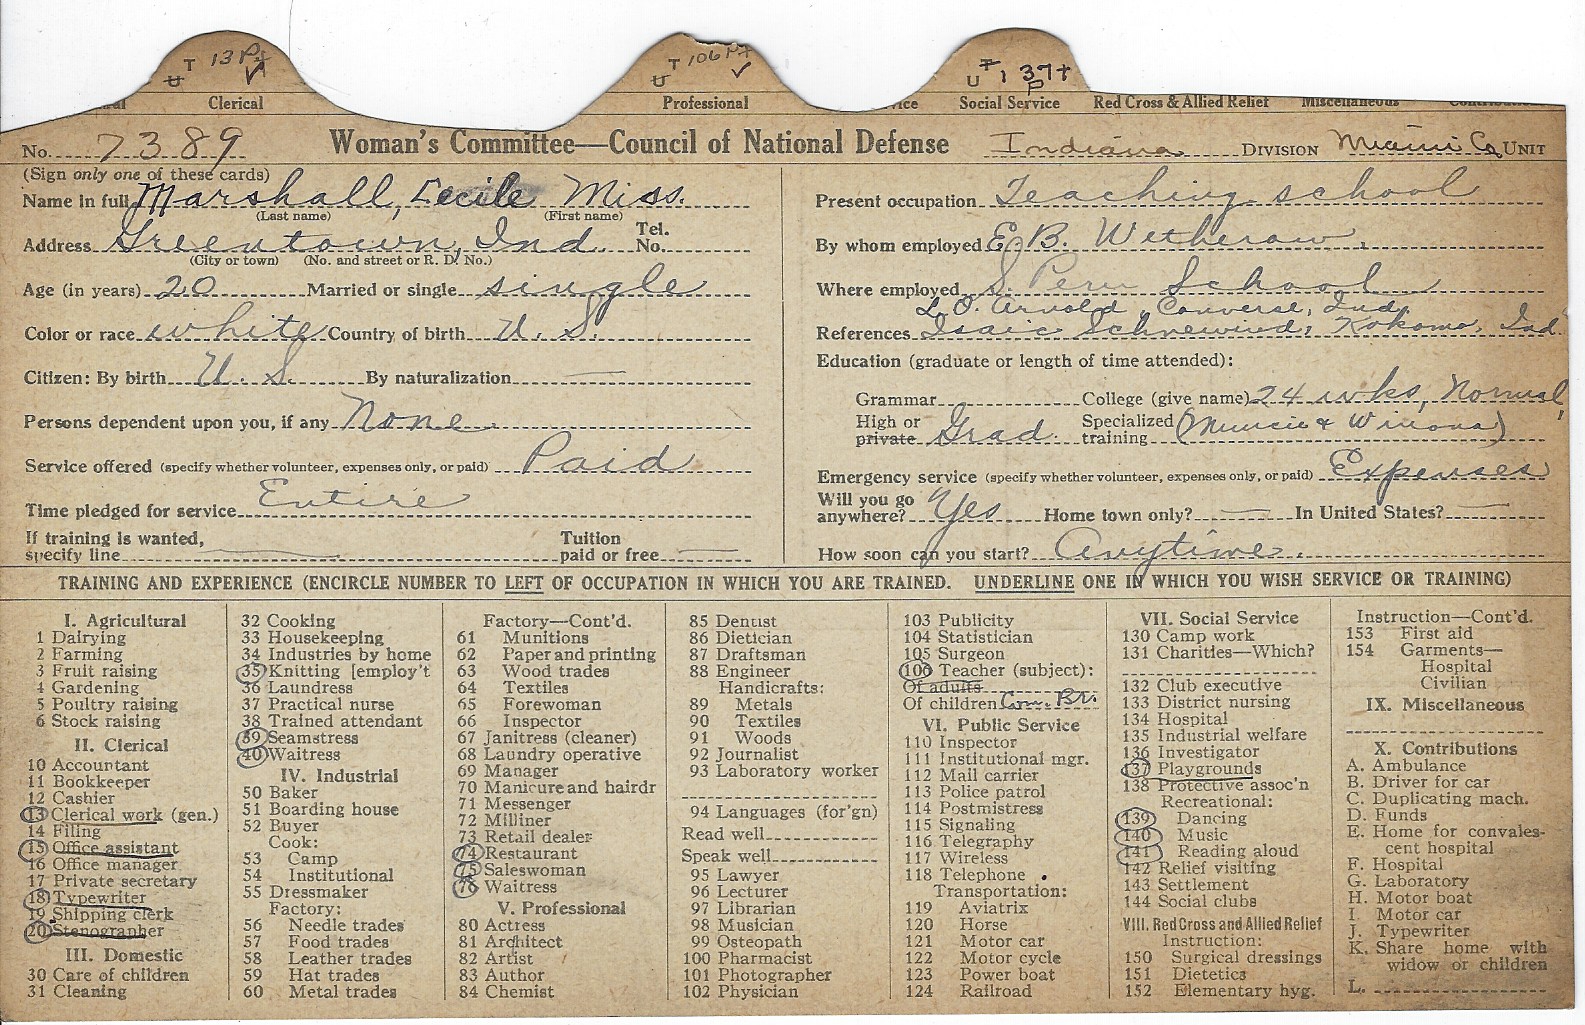 T 13 P+
U
T 106 P+
U
U 1 37+
P
Clerical Professional Social Service Red Cross & Allied Relief Miscellaneous
No. 7389 Woman's Committee—Council of National Defense Indiana DIVISION Miami Co. UNIT
(Sign only one of these cards)
Name in full Marshall, Cecile Miss.
(Last name) (First name)
Address Greentown, Ind. Tel. No.
(City or town) (No. and street or R. D. No.)
Age (in years) 20 Married or single single
Color or race white Country of birth U. S.
Citizen: By birth U. S. By naturalization —
Persons dependent upon you, if any None
Service offered (specify whether volunteer, expenses only, or paid) Paid
Time pledged for service Entire
If training is wanted, specify line — Tuition paid or free —
Present occupation Teaching school
By whom employed E. B. Wetherow.
Where employed S. Peru School
L. O. Arnold, Converse, Ind.
References Isaic Schnewind, Kokomo, Ind.
Education (graduate or length of time attended):
Grammar College (give name) 24 wks, Normal,
High or private Grad. Specialized training (Muncie & Winona)
Emergency service (specify whether volunteer, expenses only, or paid) Expenses
Will you go anywhere? Yes Home town only? — In United States? —
How soon can you start? Anytime.
TRAINING AND EXPERIENCE (ENCIRCLE NUMBER TO LEFT OF OCCUPATION IN WHICH YOU ARE TRAINED. UNDERLINE ONE IN WHICH YOU WISH SERVICE OR TRAINING)
I. Agricultural
1 Dairying
2 Farming
3 Fruit raising
4 Gardening
5 Poultry raising
6 Stock raising
II. Clerical
10 Accountant
11 Bookkeeper
12 Cashier
13 Clerical work (gen.)
14 Filing
15 Office assistant
16 Office manager
17 Private secretary
18 Typewriter
19 Shipping clerk
20 Stenographer
III. Domestic
30 Care of children
31 Cleaning
32 Cooking
33 Housekeeping
34 Industries by home
35 Knitting [employ't
36 Laundress
37 Practical nurse
38 Trained attendant
39 Seamstress
40 Waitress
IV. Industrial
50 Baker
51 Boarding house
52 Buyer
Cook:
53 Camp
54 Institutional
55 Dressmaker
Factory:
56 Needle trades
57 Food trades
58 Leather trades
59 Hat trades
60 Metal trades
Factory—Cont'd.
61 Munitions
62 Paper and printing
63 Wood trades
64 Textiles
65 Forewoman
66 Inspector
67 Janitress (cleaner)
68 Laundry operative
69 Manager
70 Manicure and hairdr
71 Messenger
72 Milliner
73 Retail dealer
74 Restaurant
75 Saleswoman
76 Waitress
V. Professional
80 Actress
81 Architect
82 Artist
83 Author
84 Chemist
85 Dentist
86 Dietician
87 Draftsman
88 Engineer
Handicrafts:
89 Metals
90 Textiles
91 Woods
92 Journalist
93 Laboratory worker
94 Languages (for'gn)
Read well
Speak well
95 Lawyer
96 Lecturer
97 Librarian
98 Musician
99 Osteopath
100 Pharmacist
101 Photographer
102 Physician
103 Publicity
104 Statistician
105 Surgeon
106 Teacher (subject):
Of adults
Of children Com. Br.
VI. Public Service
110 Inspector
111 Institutional mgr.
112 Mail carrier
113 Police patrol
114 Postmistress
115 Signaling
116 Telegraphy
117 Wireless
118 Telephone
Transportation:
119 Aviatrix
120 Horse
121 Motor car
122 Motor cycle
123 Power boat
124 Railroad
VII. Social Service
130 Camp work
131 Charities—Which?
132 Club executive
133 District nursing
134 Hospital
135 Industrial welfare
136 Investigator
137 Playgrounds
138 Protective assoc'n
Recreational:
139 Dancing
140 Music
141 Reading aloud
142 Relief visiting
143 Settlement
144 Social clubs
VIII. Red Cross and Allied Relief
Instruction:
150 Surgical dressings
151 Dietetics
152 Elementary hyg.
Instruction—Cont'd.
153 First aid
154 Garments—
Hospital
Civilian
IX. Miscellaneous
X. Contributions
A. Ambulance
B. Driver for car
C. Duplicating mach.
D. Funds
E. Home for convales-
cent hospital
F. Hospital
G. Laboratory
H. Motor boat
I. Motor car
J. Typewriter
K. Share home with
widow or children
L.